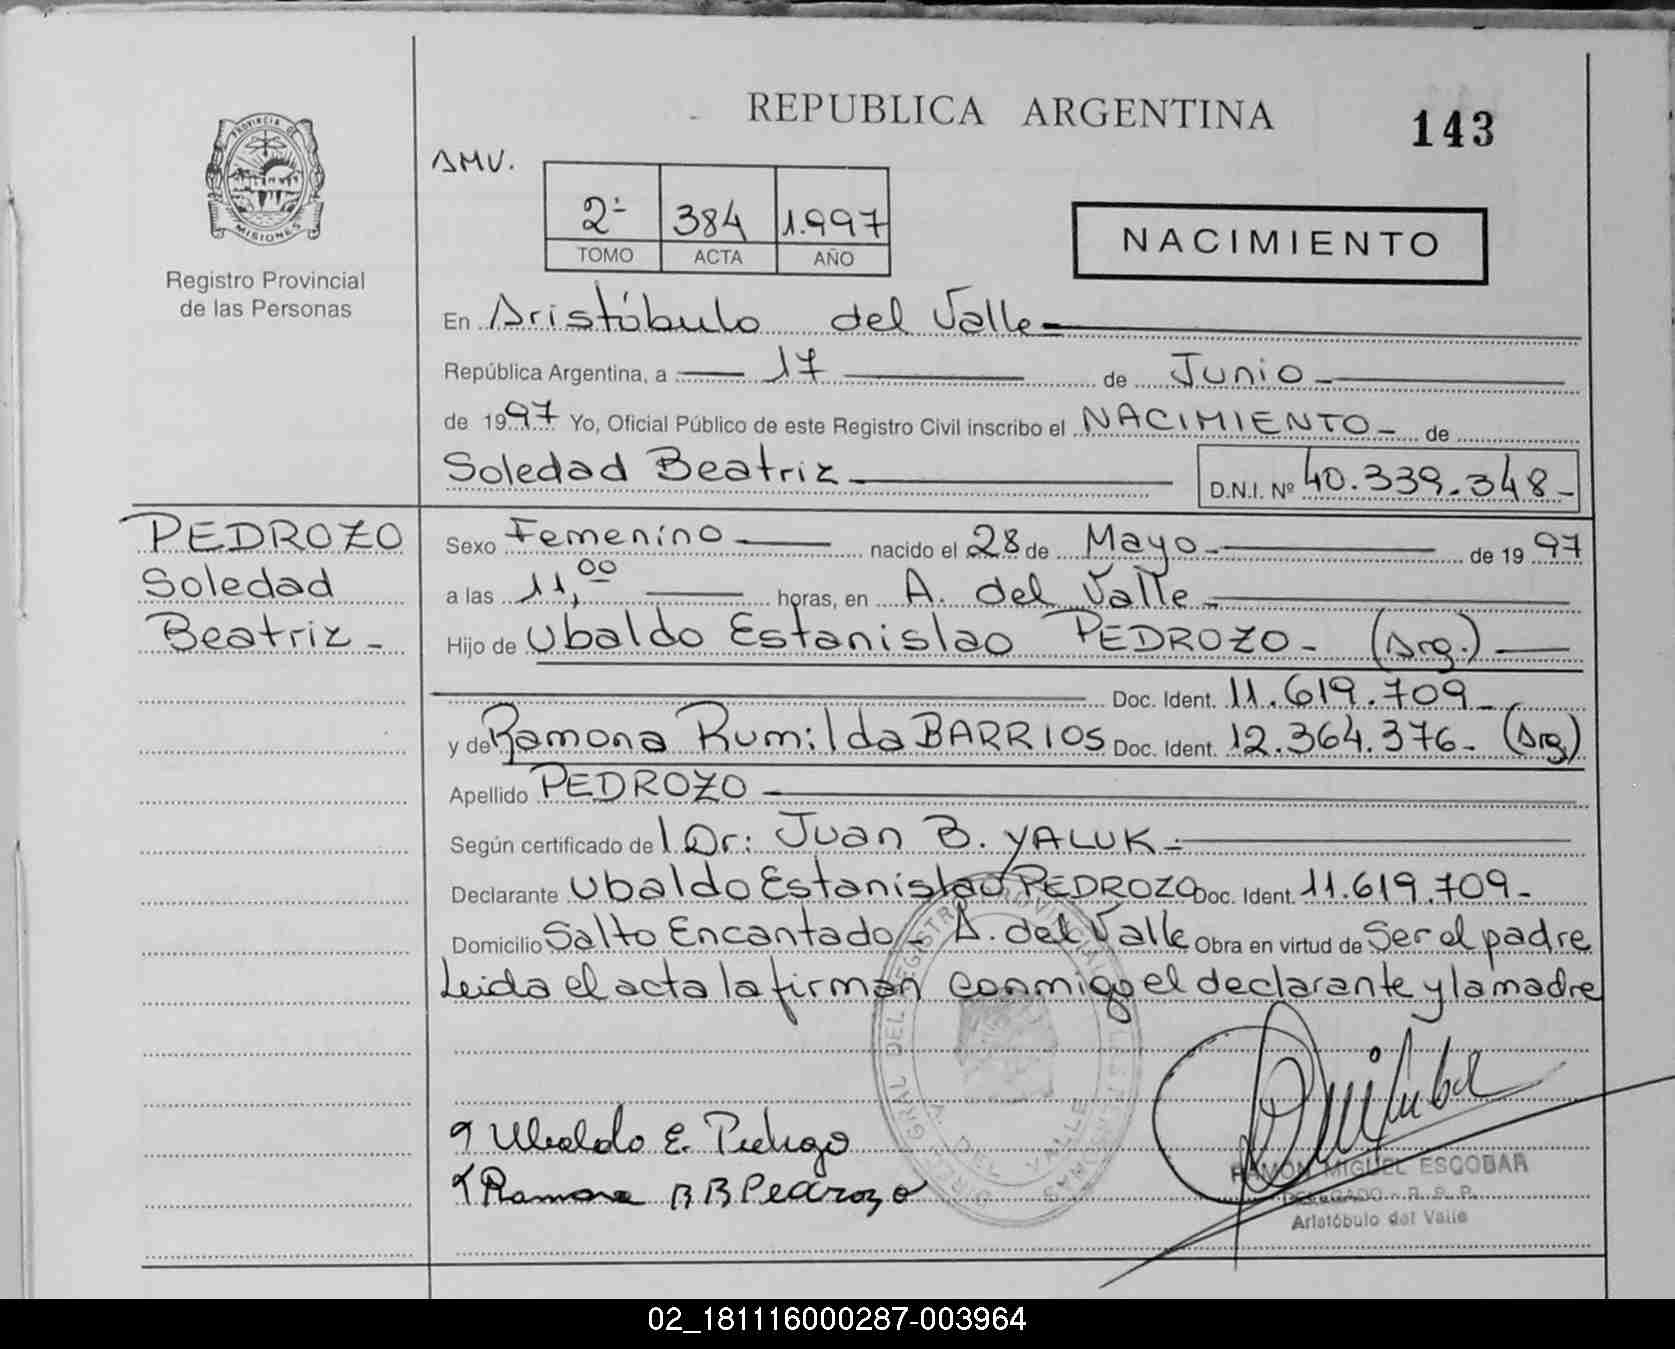 REPUBLICA ARGENTINA
143
PROVINCIA DE MISIONES
Registro Provincial
de las Personas
AMV.
2ª 384 1.997
TOMO ACTA AÑO
NACIMIENTO
En Aristóbulo del Valle
República Argentina, a 17 de Junio
de 1997 Yo, Oficial Público de este Registro Civil inscribo el NACIMIENTO de
Soledad Beatriz D.N.I. Nº 40.339.348
PEDROZO
Soledad
Beatriz
Sexo Femenino nacido el 28 de Mayo de 1997
a las 11,00 horas, en A. del Valle
Hijo de Ubaldo Estanislao PEDROZO (Arg.)
Doc. Ident. 11.619.709
y de Ramona Rumilda BARRIOS Doc. Ident. 12.364.376 (Arg)
Apellido PEDROZO
Según certificado del Dr: Juan B. YALUK
Declarante Ubaldo Estanislao PEDROZO Doc. Ident. 11.619.709
Domicilio Salto Encantado - A. del Valle Obra en virtud de Ser el padre
Leida el acta la firman conmigo el declarante y la madre
Ubaldo E. Pedrozo
Ramona R B Pedrozo
A. DEL VALLE
RAMÓN MIGUEL ESCOBAR
DELEGADO - R. P. P.
Aristóbulo del Valle
02_181116000287-003964